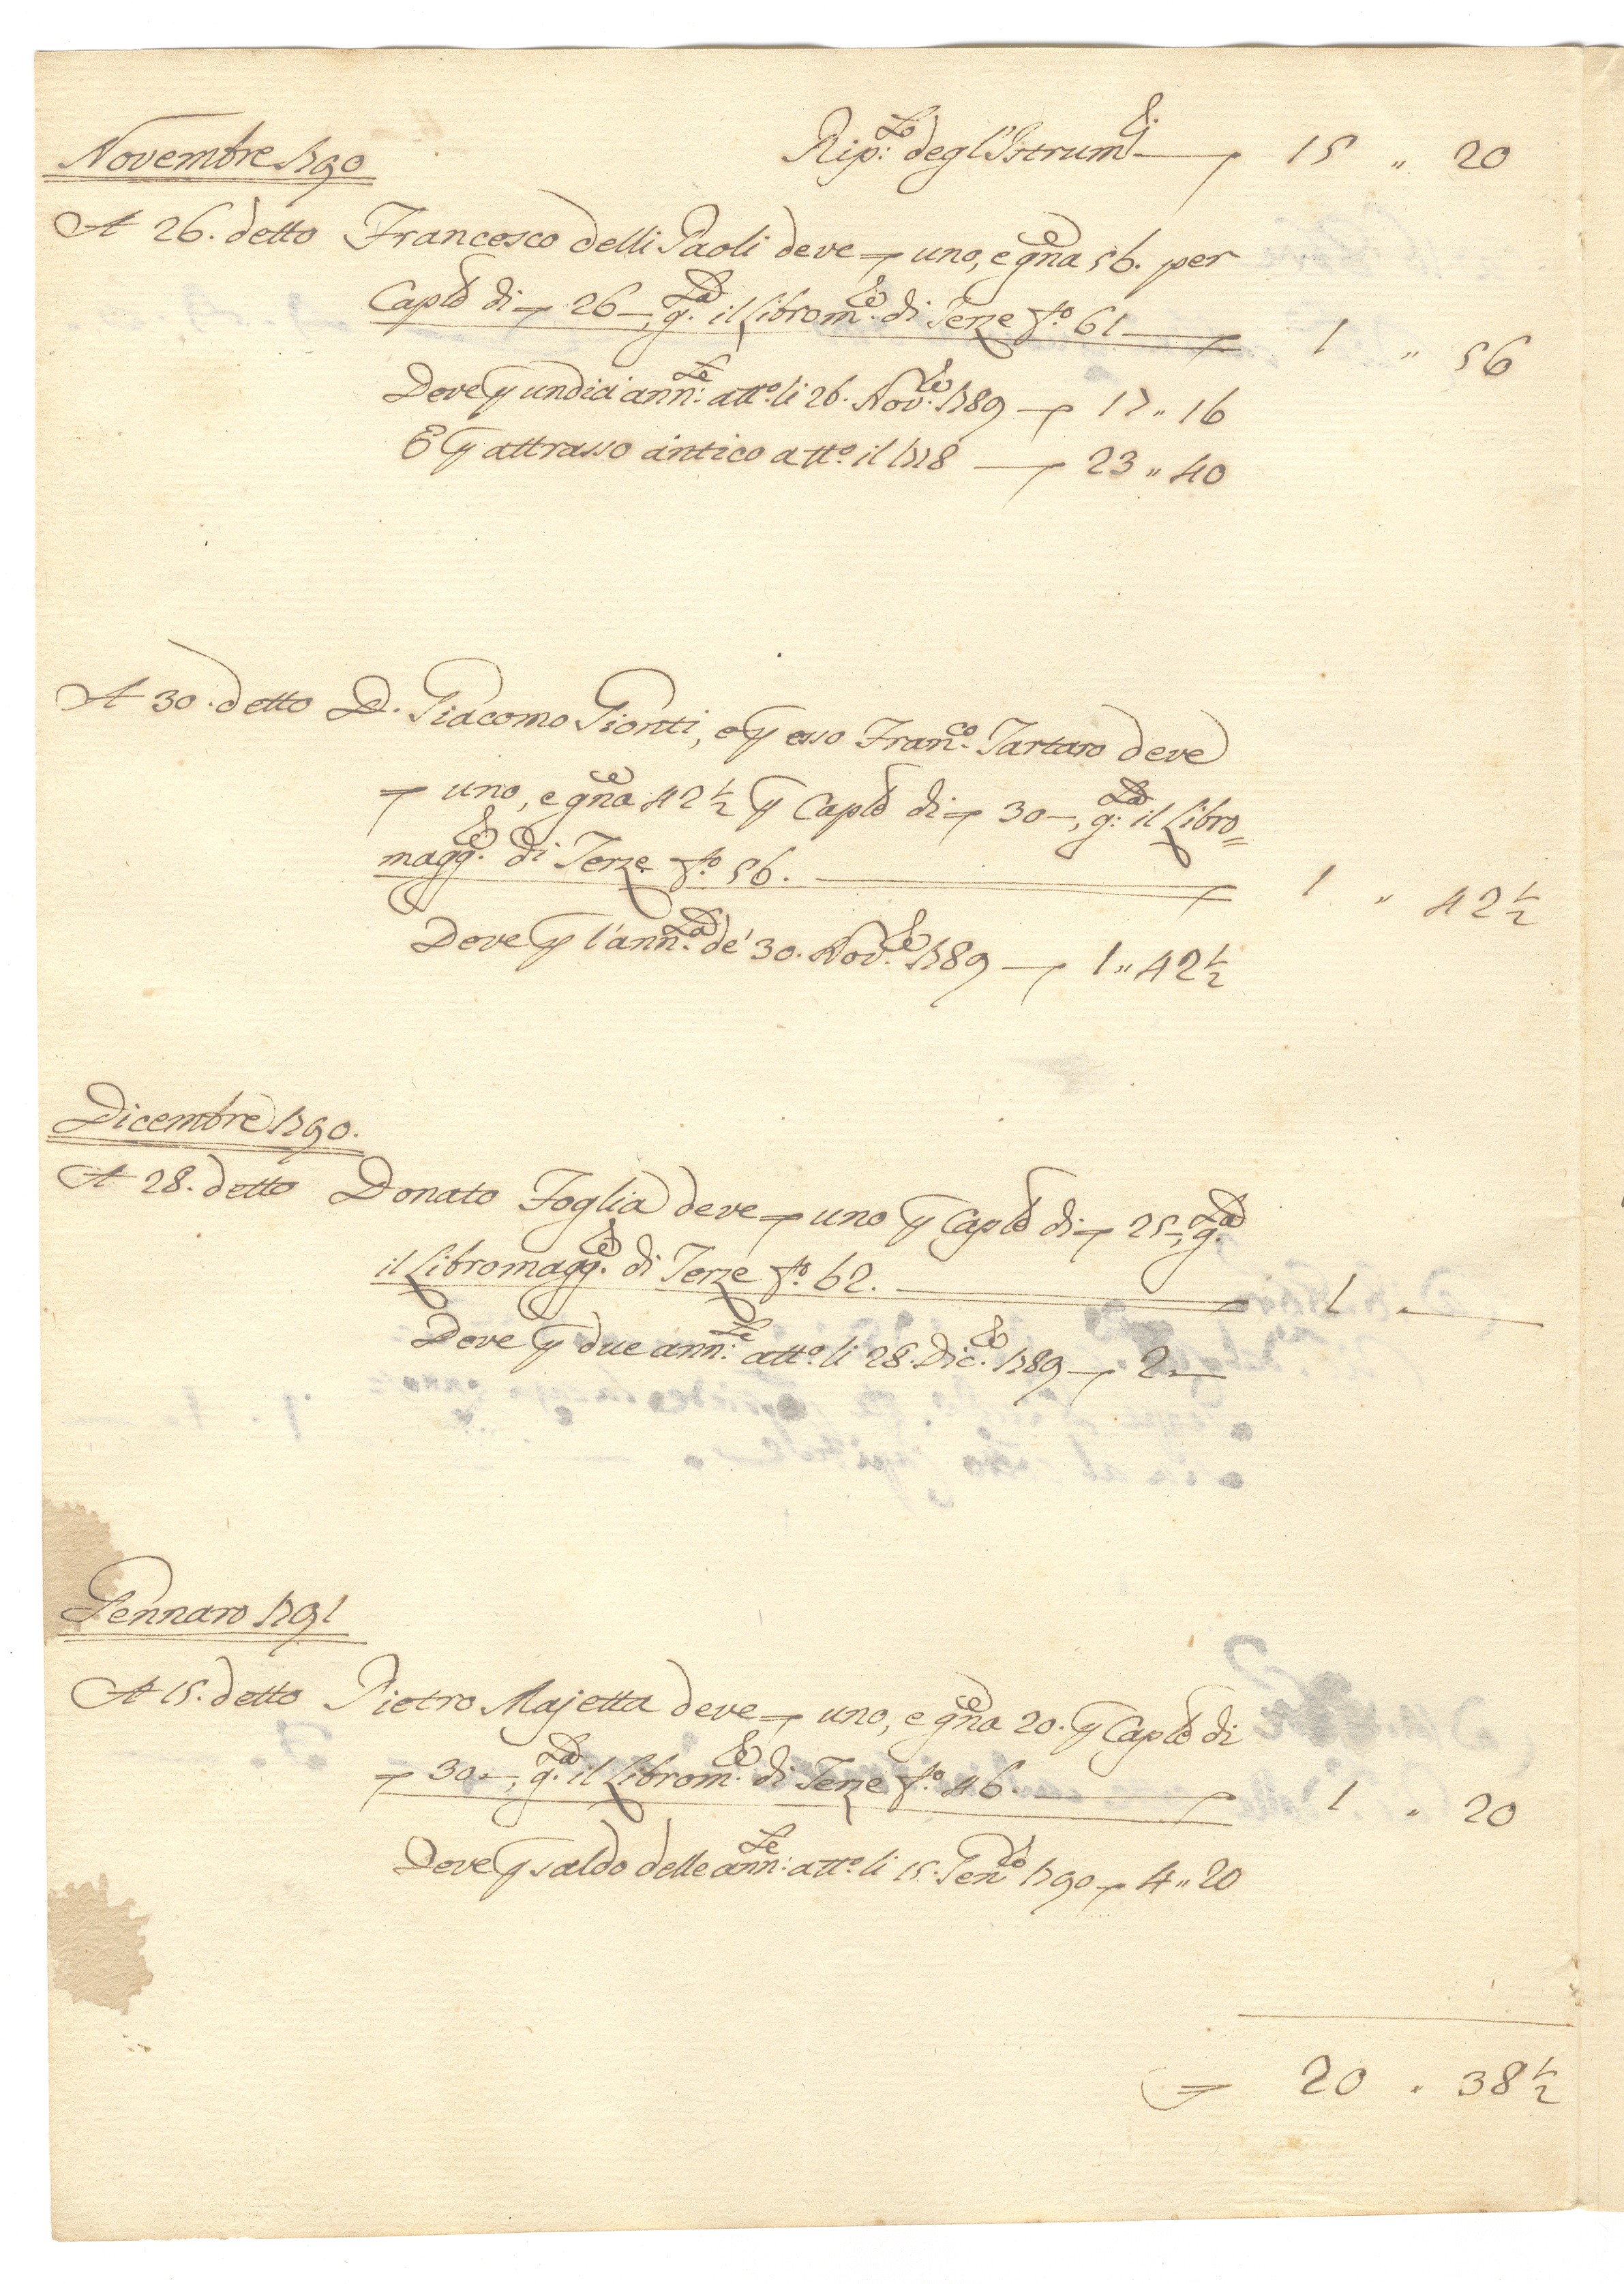 Novembre 1790 Rip:to degl'Istrum:ti — 15 " 20
A 26. detto Francesco delli Paoli deve uno, e gña 56. per
Caple di 26 —, g:da il Librom:e di Terze fo. 61 — 1 " 56
Deve p undici ann:te atto. li 26. Nov:e 1789 — 17 " 16
E p attrasso antico atto. il 1778 — 23 " 40
A 30. detto D. Giacomo Gionti, e p esso Fran:co Tartaro deve
uno, e gña 42 1/2 p Caple di 30 —, g:da il Libro=
magg:e di Terze fo. 56. — 1 " 42 1/2
Deve p l'ann:ta de' 30. Nov:e 1789 — 1 " 42 1/2
Dicembre 1790.
A 28. detto Donato Foglia deve uno p Caple di 25 —, g:da
il Libromagg:e di Terze fo. 62. — 1 " —
Deve p due ann:te atto. li 28. Dic:e 1789 — 2 " —
Gennaro 1791
A 15. detto Pietro Majetta deve uno, e gña 20. p Caple di
30 —, g:da il Librom:e di Terze fo. 46. — 1 " 20
Deve p saldo delle ann:te atto. li 15. Gen:o 1790 — 4 " 20
20 " 38 1/2